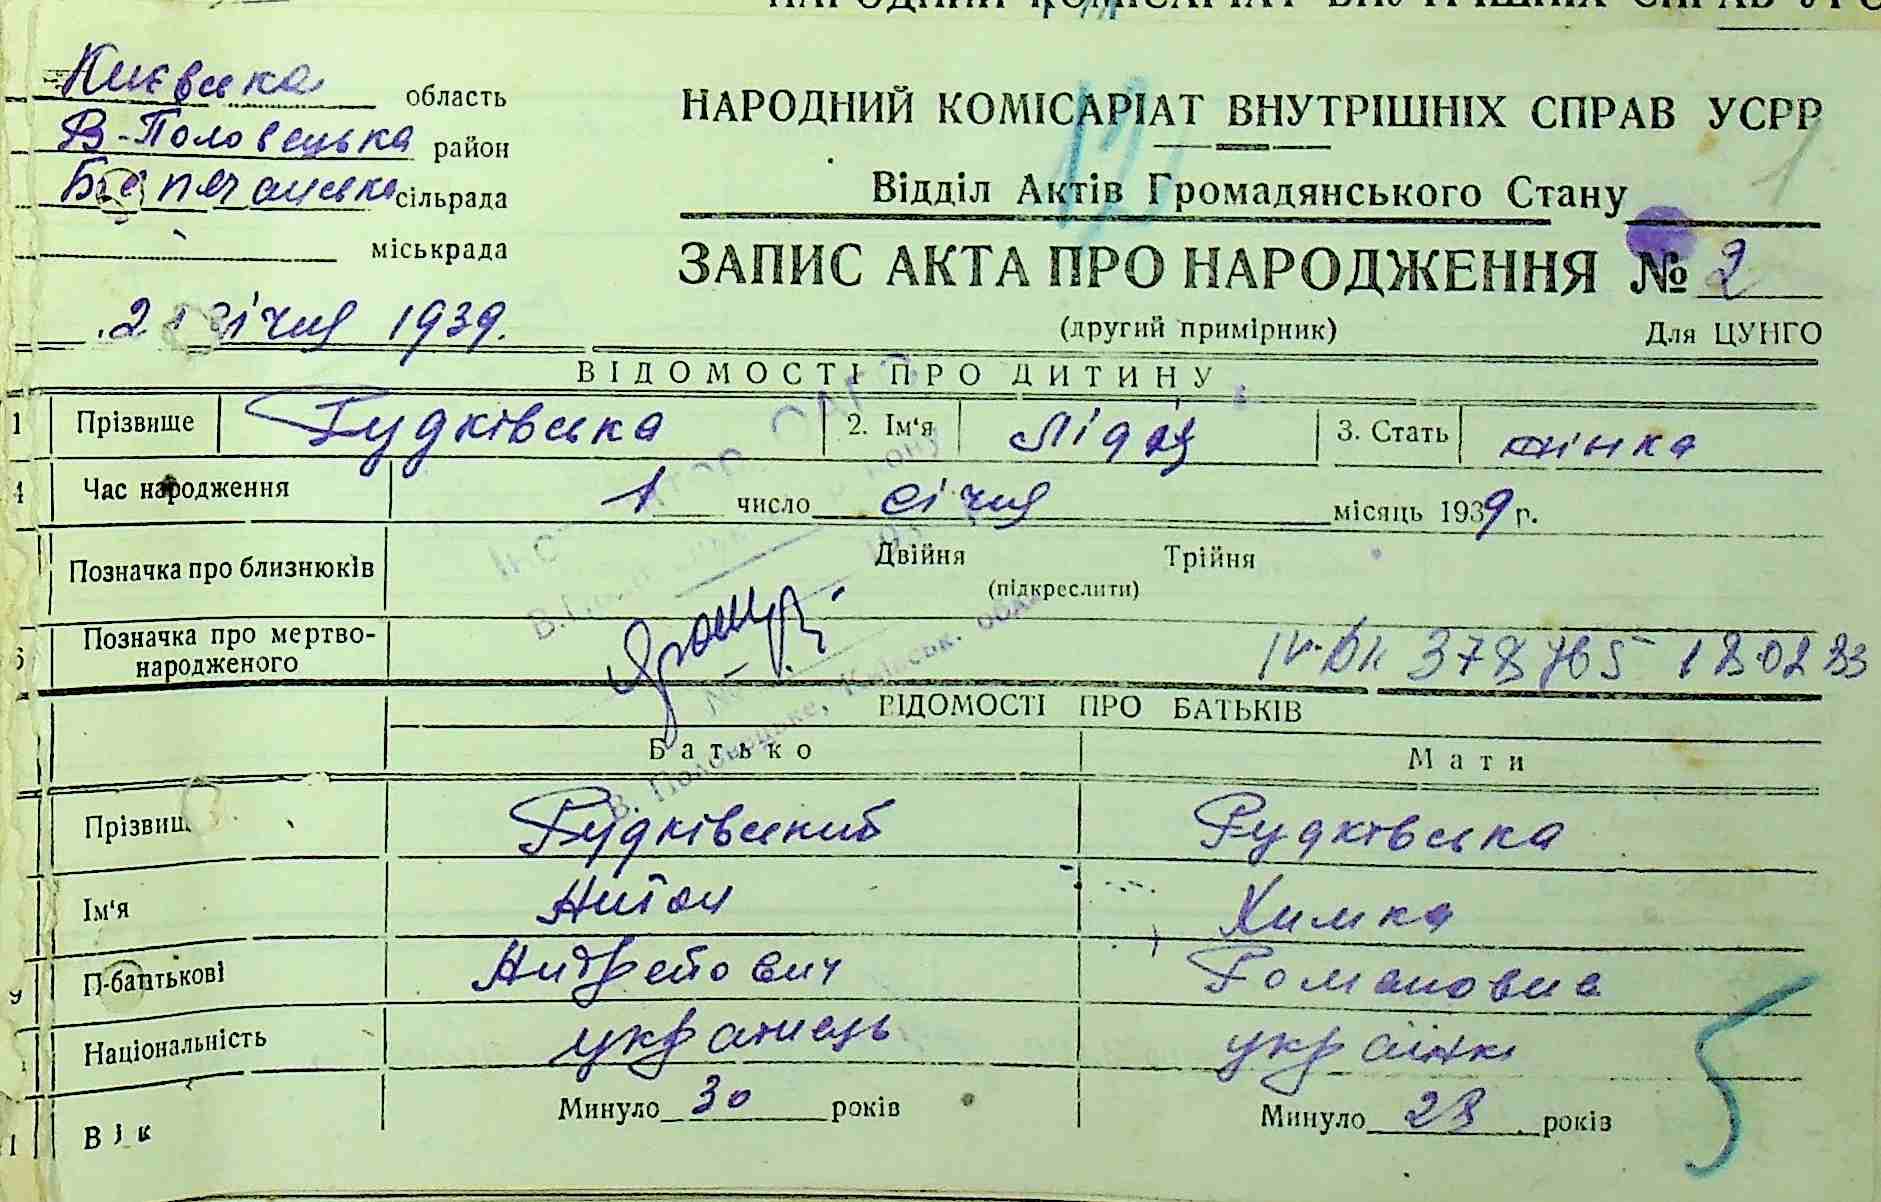 Києвська область
В-Половецька район
сільрада
міськрада
2 січня 1939.
НАРОДНИЙ КОМІСАРІАТ ВНУТРІШНІХ СПРАВ УСРР
Відділ Актів Громадянського Стану
1
ЗАПИС АКТА ПРО НАРОДЖЕННЯ № 2
(другий примірник) Для ЦУНГО
ВІДОМОСТІ ПРО ДИТИНУ
1 Прізвище Рудківська 2. Ім'я Лідія 3. Стать жінка
4 Час народження 1 число січня місяць 1939 р.
Позначка про близнюків Двійня Трійня
(підкреслити)
Позначка про мертво-
народженого
378765 18 02 93
ВІДОМОСТІ ПРО БАТЬКІВ
Батько Мати
Прізвищ Рудківський Рудківська
Ім'я Антон Химка
П-баптькові Андрейович Романовна
Національність українець українк
Вік Минуло 30 років Минуло 28 років
5